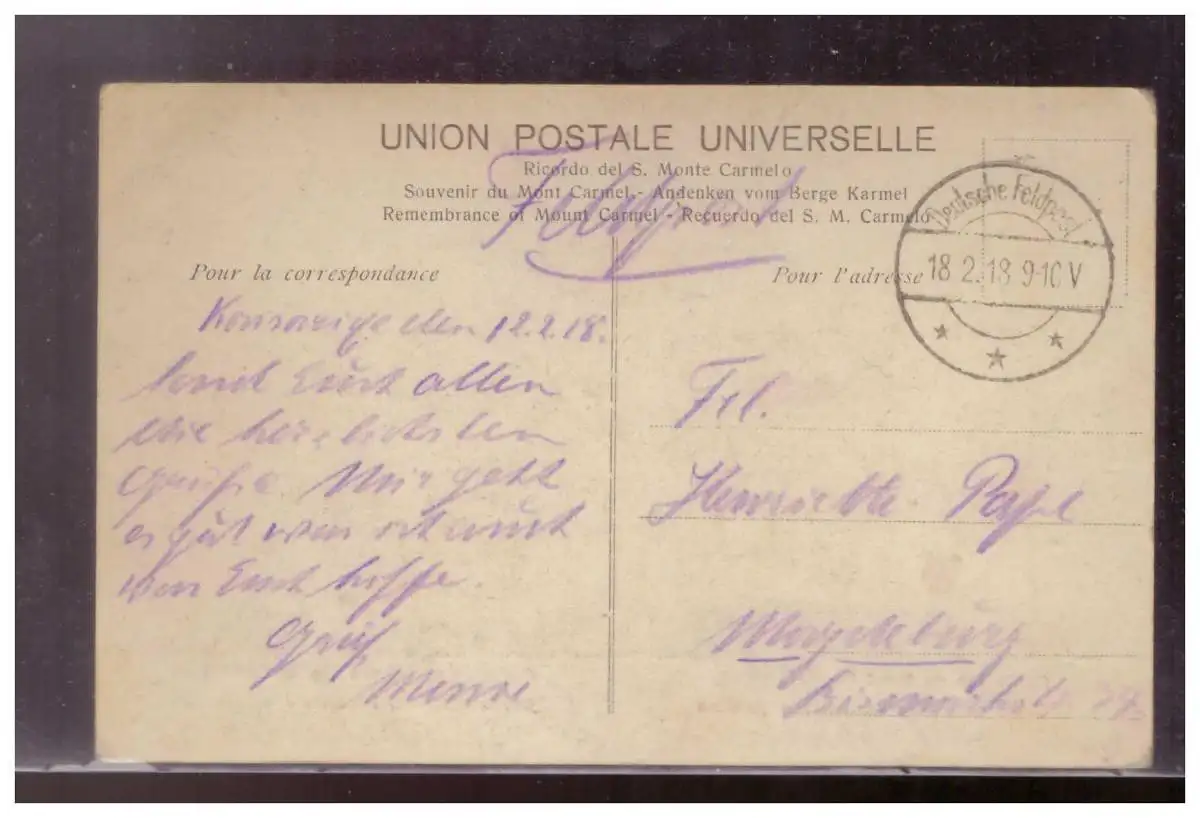 UNION POSTALE UNIVERSELLE
Ricordo del S. Monte Carmelo
Souvenir du Mont Carmel.- Andenken vom Berge Karmel
Remembrance of Mount Carmel - Recuerdo del S. M. Carmelo
Feldpost
Deutsche Feldpost
18 2.18 9-10 V
Pour la correspondance
den 12.2.18.
Euch allen
die herzlichsten
Grüße Mir geht
es gut was ich auch
von Euch hoffe.
Gruß
Pour l'adresse
Frl.
Henriette Pape
Magdeburg